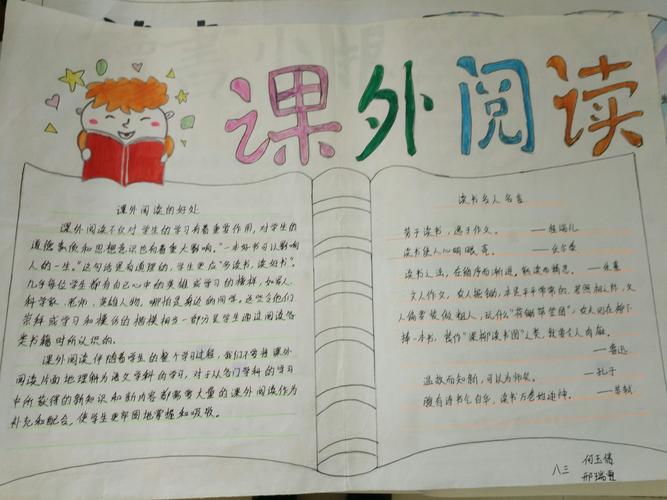 课外阅读
课外阅读的好处
课外阅读不仅对学生的学习有着重要作用,对学生的
道德素质和思想意识也有着重大影响。"一本好书可以影响
人的一生。"这句话是有道理的,学生更应"多读书,读好书"。
几乎每位学生都有自己心中的英雄或学习的榜样,如军人、
科学家、老师、英雄人物,哪怕是身边的同学。这些令他们
崇拜或学习和模仿的楷模相当一部分是学生通过阅读各
类书籍时所认识的。
课外阅读伴随着学生的整个学习过程,我们不要将课外
阅读片面地理解为语文学科的学习,对于从各门学科的学习
中所获得的新知识和新内容都需要大量的课外阅读作为
补充和配合,使学生更牢固地掌握和吸收。
读书名人名言
劳于读书,逸于作文。——程端礼
读书使人心明眼亮。——伏尔泰
读书之法,在循序而渐进,熟读而精思。——朱熹
文人作文,农人掘锄,本是平平常常的,若照相之际,文
人偏要装做粗人,玩什么"荷锄带笠图",农夫则在柳下
捧一本书,装作"深柳读书图"之类,就要令人肉麻。
——鲁迅
温故而知新,可以为师矣。——孔子
腹有诗书气自华,读书万卷始通神。——苏轼
八三
何玉倩
邢瑞雪